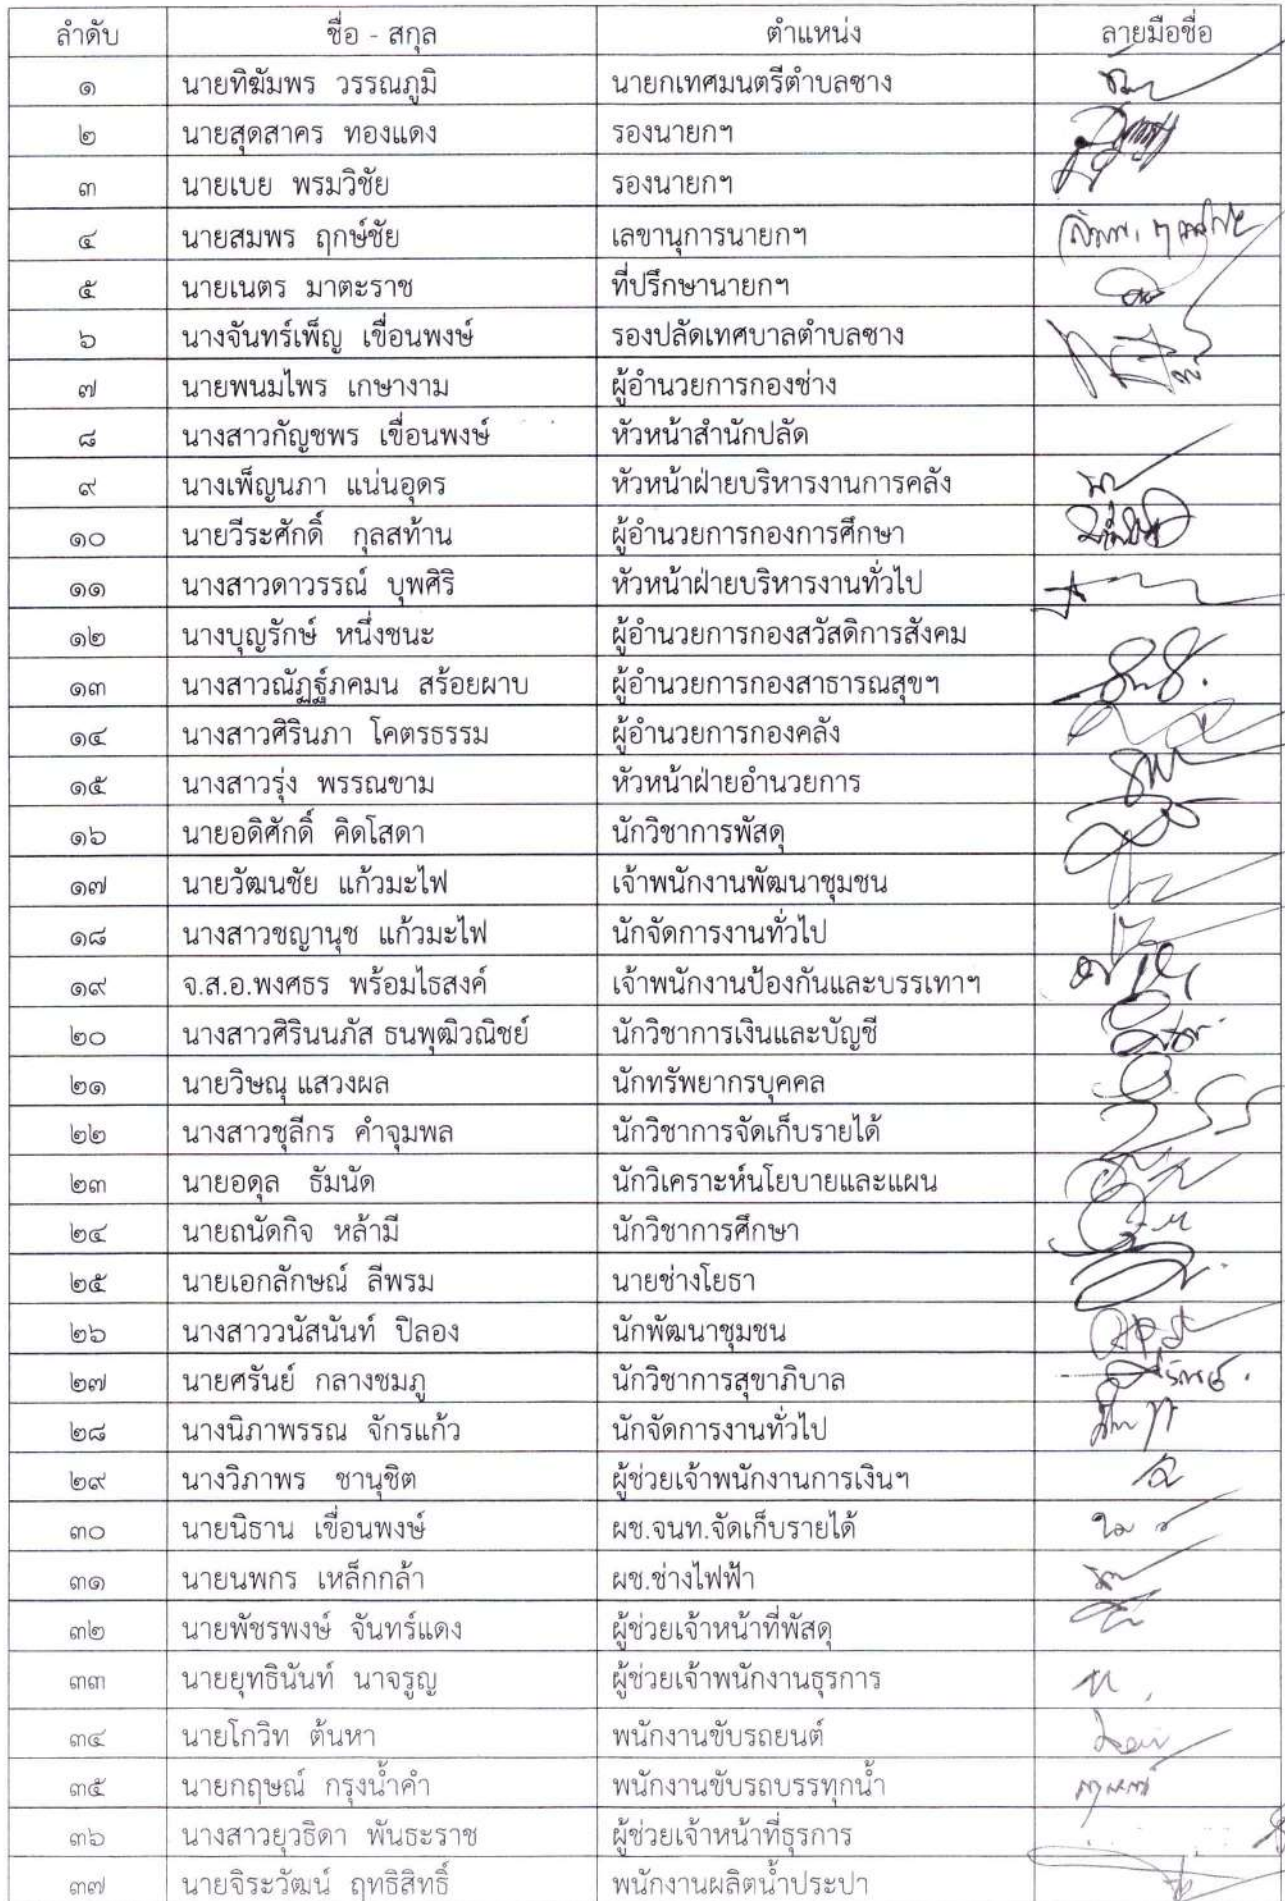 ลำดับ ชื่อ - สกุล ตำแหน่ง ลายมือชื่อ
๑ นายทิฆัมพร วรรณภูมิ นายกเทศมนตรีตำบลซาง
๒ นายสุดสาคร ทองแดง รองนายกฯ
๓ นายเบย พรมวิชัย รองนายกฯ
๔ นายสมพร ฤกษ์ชัย เลขานุการนายกฯ
๕ นายเนตร มาตะราช ที่ปรึกษานายกฯ
๖ นางจันทร์เพ็ญ เขื่อนพงษ์ รองปลัดเทศบาลตำบลซาง
๗ นายพนมไพร เกษางาม ผู้อำนวยการกองช่าง
๘ นางสาวกัญชพร เขื่อนพงษ์ หัวหน้าสำนักปลัด
๙ นางเพ็ญนภา แน่นอุดร หัวหน้าฝ่ายบริหารงานการคลัง
๑๐ นายวีระศักดิ์ กุลสท้าน ผู้อำนวยการกองการศึกษา
๑๑ นางสาวดาวรรณ์ บุพศิริ หัวหน้าฝ่ายบริหารงานทั่วไป
๑๒ นางบุญรักษ์ หนึ่งชนะ ผู้อำนวยการกองสวัสดิการสังคม
๑๓ นางสาวณัฏฐ์ภคมน สร้อยผาบ ผู้อำนวยการกองสาธารณสุขฯ
๑๔ นางสาวศิรินภา โคตรธรรม ผู้อำนวยการกองคลัง
๑๕ นางสาวรุ่ง พรรณขาม หัวหน้าฝ่ายอำนวยการ
๑๖ นายอดิศักดิ์ คิดโสดา นักวิชาการพัสดุ
๑๗ นายวัฒนชัย แก้วมะไฟ เจ้าพนักงานพัฒนาชุมชน
๑๘ นางสาวชญานุช แก้วมะไฟ นักจัดการงานทั่วไป
๑๙ จ.ส.อ.พงศธร พร้อมไธสงค์ เจ้าพนักงานป้องกันและบรรเทาฯ
๒๐ นางสาวศิรินนภัส ธนพุฒิวณิชย์ นักวิชาการเงินและบัญชี
๒๑ นายวิษณุ แสวงผล นักทรัพยากรบุคคล
๒๒ นางสาวชุลีกร คำจุมพล นักวิชาการจัดเก็บรายได้
๒๓ นายอดุล ธัมนัด นักวิเคราะห์นโยบายและแผน
๒๔ นายถนัดกิจ หล้ามี นักวิชาการศึกษา
๒๕ นายเอกลักษณ์ ลีพรม นายช่างโยธา
๒๖ นางสาววนัสนันท์ ปิลอง นักพัฒนาชุมชน
๒๗ นายศรันย์ กลางชมภู นักวิชาการสุขาภิบาล
๒๘ นางนิภาพรรณ จักรแก้ว นักจัดการงานทั่วไป
๒๙ นางวิภาพร ชานุชิต ผู้ช่วยเจ้าพนักงานการเงินฯ
๓๐ นายนิธาน เขื่อนพงษ์ ผช.จนท.จัดเก็บรายได้
๓๑ นายนพกร เหล็กกล้า ผช.ช่างไฟฟ้า
๓๒ นายพัชรพงษ์ จันทร์แดง ผู้ช่วยเจ้าหน้าที่พัสดุ
๓๓ นายยุทธินันท์ นาจรูญ ผู้ช่วยเจ้าพนักงานธุรการ
๓๔ นายโกวิท ต้นหา พนักงานขับรถยนต์
๓๕ นายกฤษณ์ กรุงน้ำคำ พนักงานขับรถบรรทุกน้ำ
๓๖ นางสาวยุวธิดา พันธะราช ผู้ช่วยเจ้าหน้าที่ธุรการ
๓๗ นายจิระวัฒน์ ฤทธิสิทธิ์ พนักงานผลิตน้ำประปา